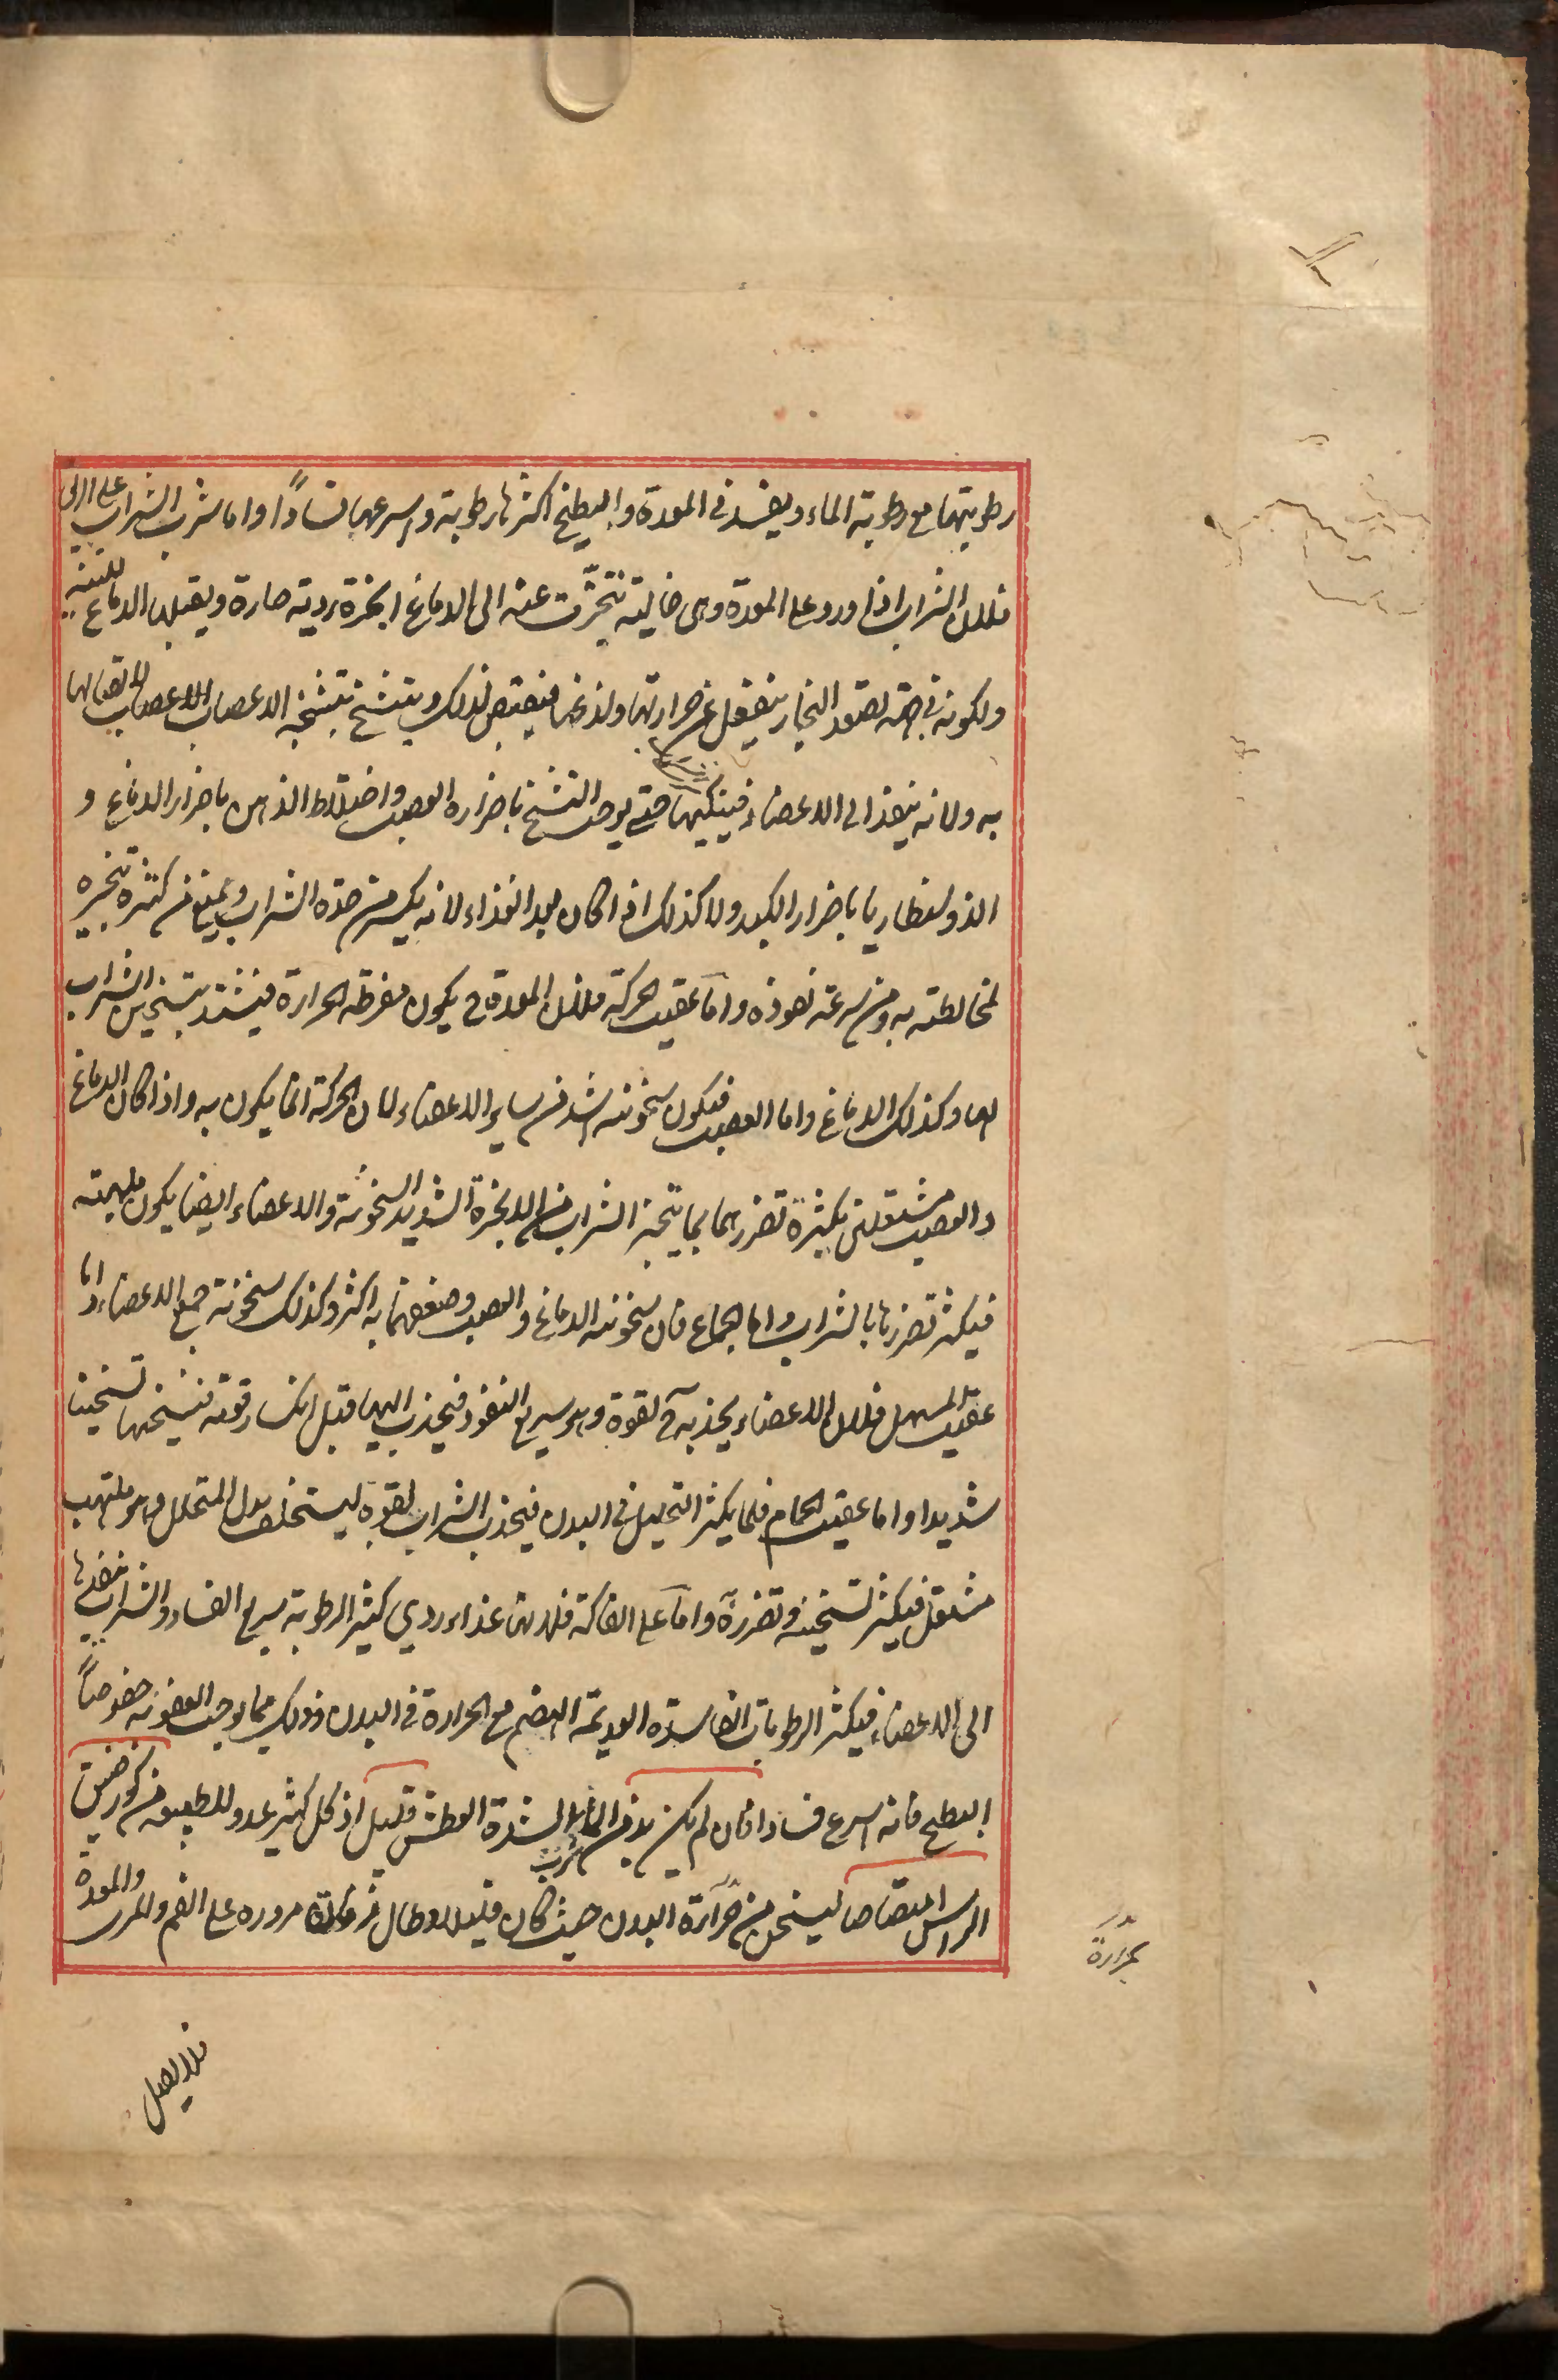 رطوبتهما مع رطوبة الماء ويفسد في المعدة والبطيخ اكثرها رطوبة واسرعها فسادًا واما شرب الشراب على الريق
فلان الشراب اذا ورد على المعدة وهى خالية تبخّرت عنه الى الدماغ ابخرة ردية حارة ويقبلها الدماغ للينه
ولكونه في جهة تصعد البخار ينفعل عن حرارتها ولذعها فينقبض لذلك ويتشنج بتشنجه الاعصاب لاتصالها
به ولانه ينفذ الى الاعضاء فينكيها حتى يوجب التشنج باضراره العصب واختلاط الذهن باضرار الدماغ و
الذوسنطاريا باضرار الكبد ولا كذلك اذا كان بعد الغذاء لانه يكسر من حدة الشراب ويمنع من كثرة تبخيره
لمخالطته به ومن سرعة نفوذه واما عقيب الحركة فلان المعدة ح يكون مفرطة الحرارة فيشتد بتسخين الشراب
لها وكذلك الدماغ واما العصب فيكون سخونته اشد من ساير الاعضاء لان الحركة انما يكون به واذا كان الدماغ
والعصب مشتعلين يكثرة تضررهما بما يتبخر الشراب من الابخرة الشديد السخونة والاعضاء ايضا يكون ملتهبة
فيكثر تضررها بالشراب واما الجماع فان سخونة الدماغ والعصب وضعفهما به اكثر وكذلك سخونة جميع الاعضاء واما
عقيب المسهل فلان الاعضاء يجذبه ح لقوة وهو سريع النفوذ فيجذب اليها قبل انكسار قوته فيسخنها تسخينا
شديدا واما عقيب الحمام فلما يكثر التحليل في البدن فيجذب الشراب لقوة ليستخلف بدل المتحلل وهو ملتهب
مشتعل فيكثر تسخينه وتضرره واما على الفاكهة فلانها غذاء ردي كثير الرطوبة سريع الفساد والشراب ينفذها
الى الاعضاء فيكثر الرطوبات الفاسدة العديمة الهضم مع الحرارة في البدن وذلك مما يوجب العفونة خصوصاً
البطيخ فانه اسرع فسادا فان لم يكن بد من الماء لشدة العطش فقليل اذ كل كثير عدو للطبيعة من كوز ضيق
شرب
الراس امتصاصا ليسخن من حرارة البدن حيث كان قليلا وطال زمان مروره على الفم والمرى والمعدة
بحرارة
فلا يصل